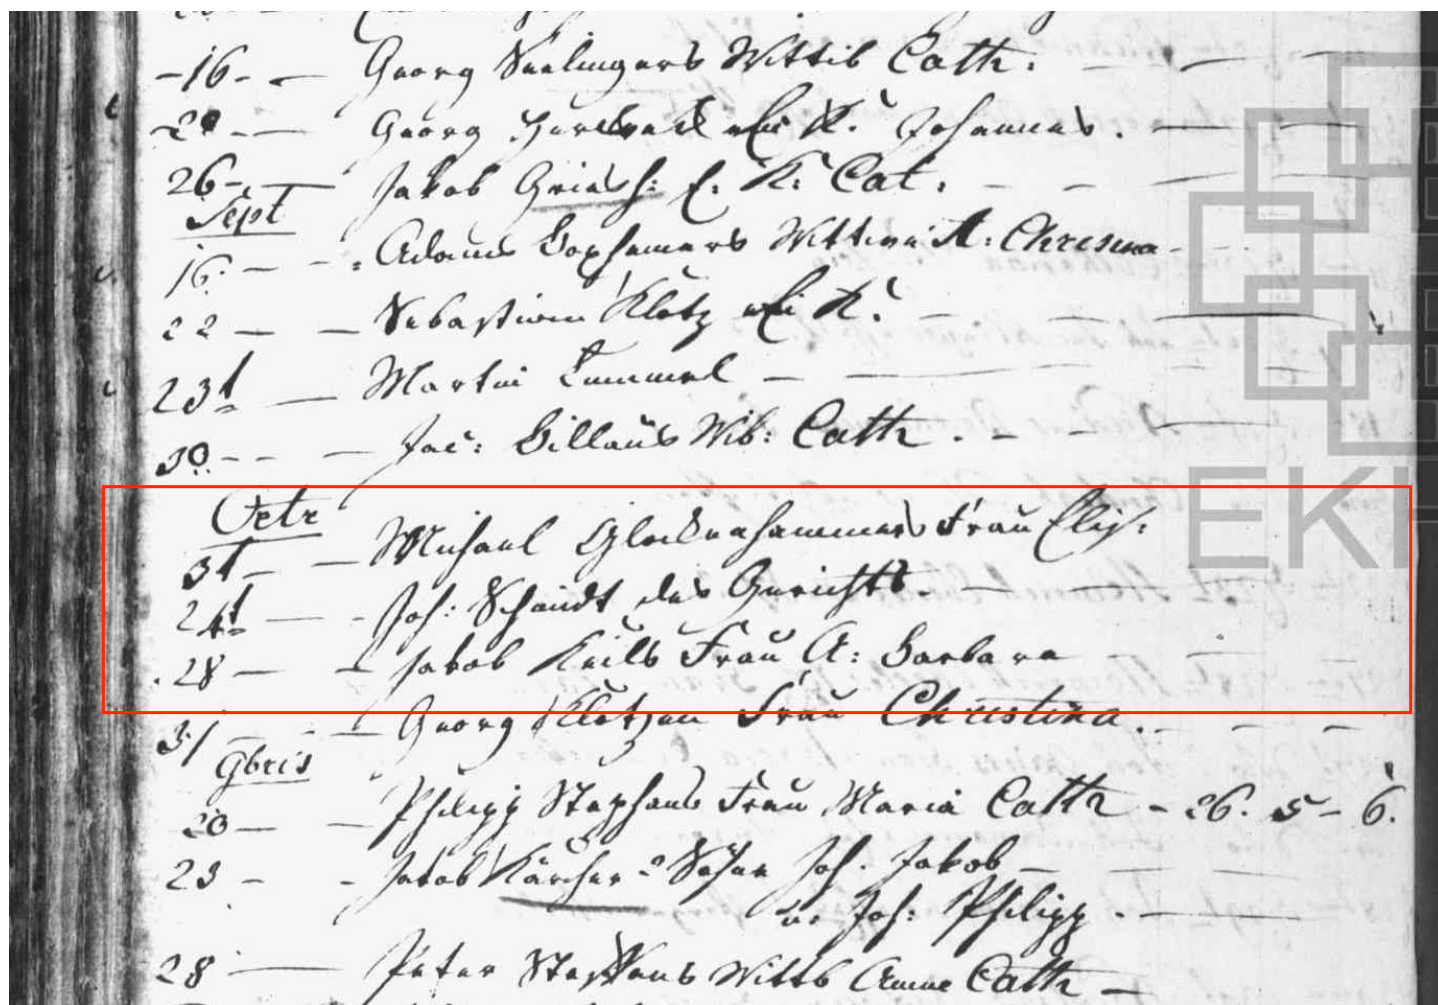 -16- — Georg Seelingers Wittib Cath: —
20 — Georg ein K. Johannes. —
26- — Jakob Griesh: E. K. Cat. - -
Sept
16. — Adams Wittwe A: Christina
22 — — Sebastian Klotz ein K. —
23t — Martin Kummel —
30 - - — Jac: Gillaus Wib: Cath. - -
Octr
3t — Michael Glockenhammers Frau Elis:
24t — Joh: Schmidt des Gerichts. —
28 — — Jakob Keils Frau A: Barbara
31 — — Georg Klotzen Frau Christina. - -
9bris
20 — — Philipp Stephans Frau Maria Cath - 26. 5 - 6.
23 - - Jakob Kärcher 2 Söhne Joh. Jakob —
u. Joh: Philipp. —
28 — Peter Stephans Wittb Anne Cath —
EKI